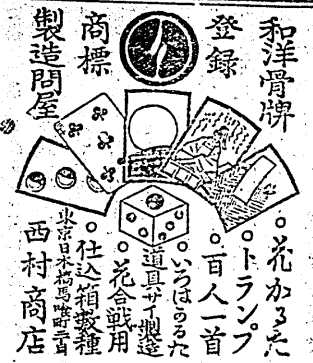 和洋骨牌
登録
商標
製造問屋
○花かるた
○トランプ
○百人一首
○いろはかるた
道具サイ製造
○花合戦用
○仕込箱数種
東京日本橋馬喰町二丁目
西村商店